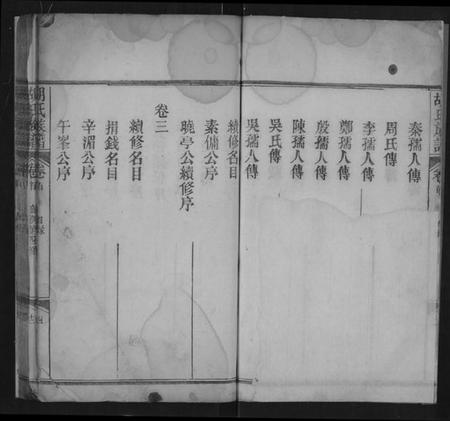 秦孺人傳
周氏傳
李孺人傳
鄭孺人傳
殷孺人傳
陳孺人傳
吳氏傳
吳孺人傳
續修名目
素傭公序
曉亭公續修序
卷三
續修名目
捐錢名目
辛湄公序
午峯公序
胡氏族譜